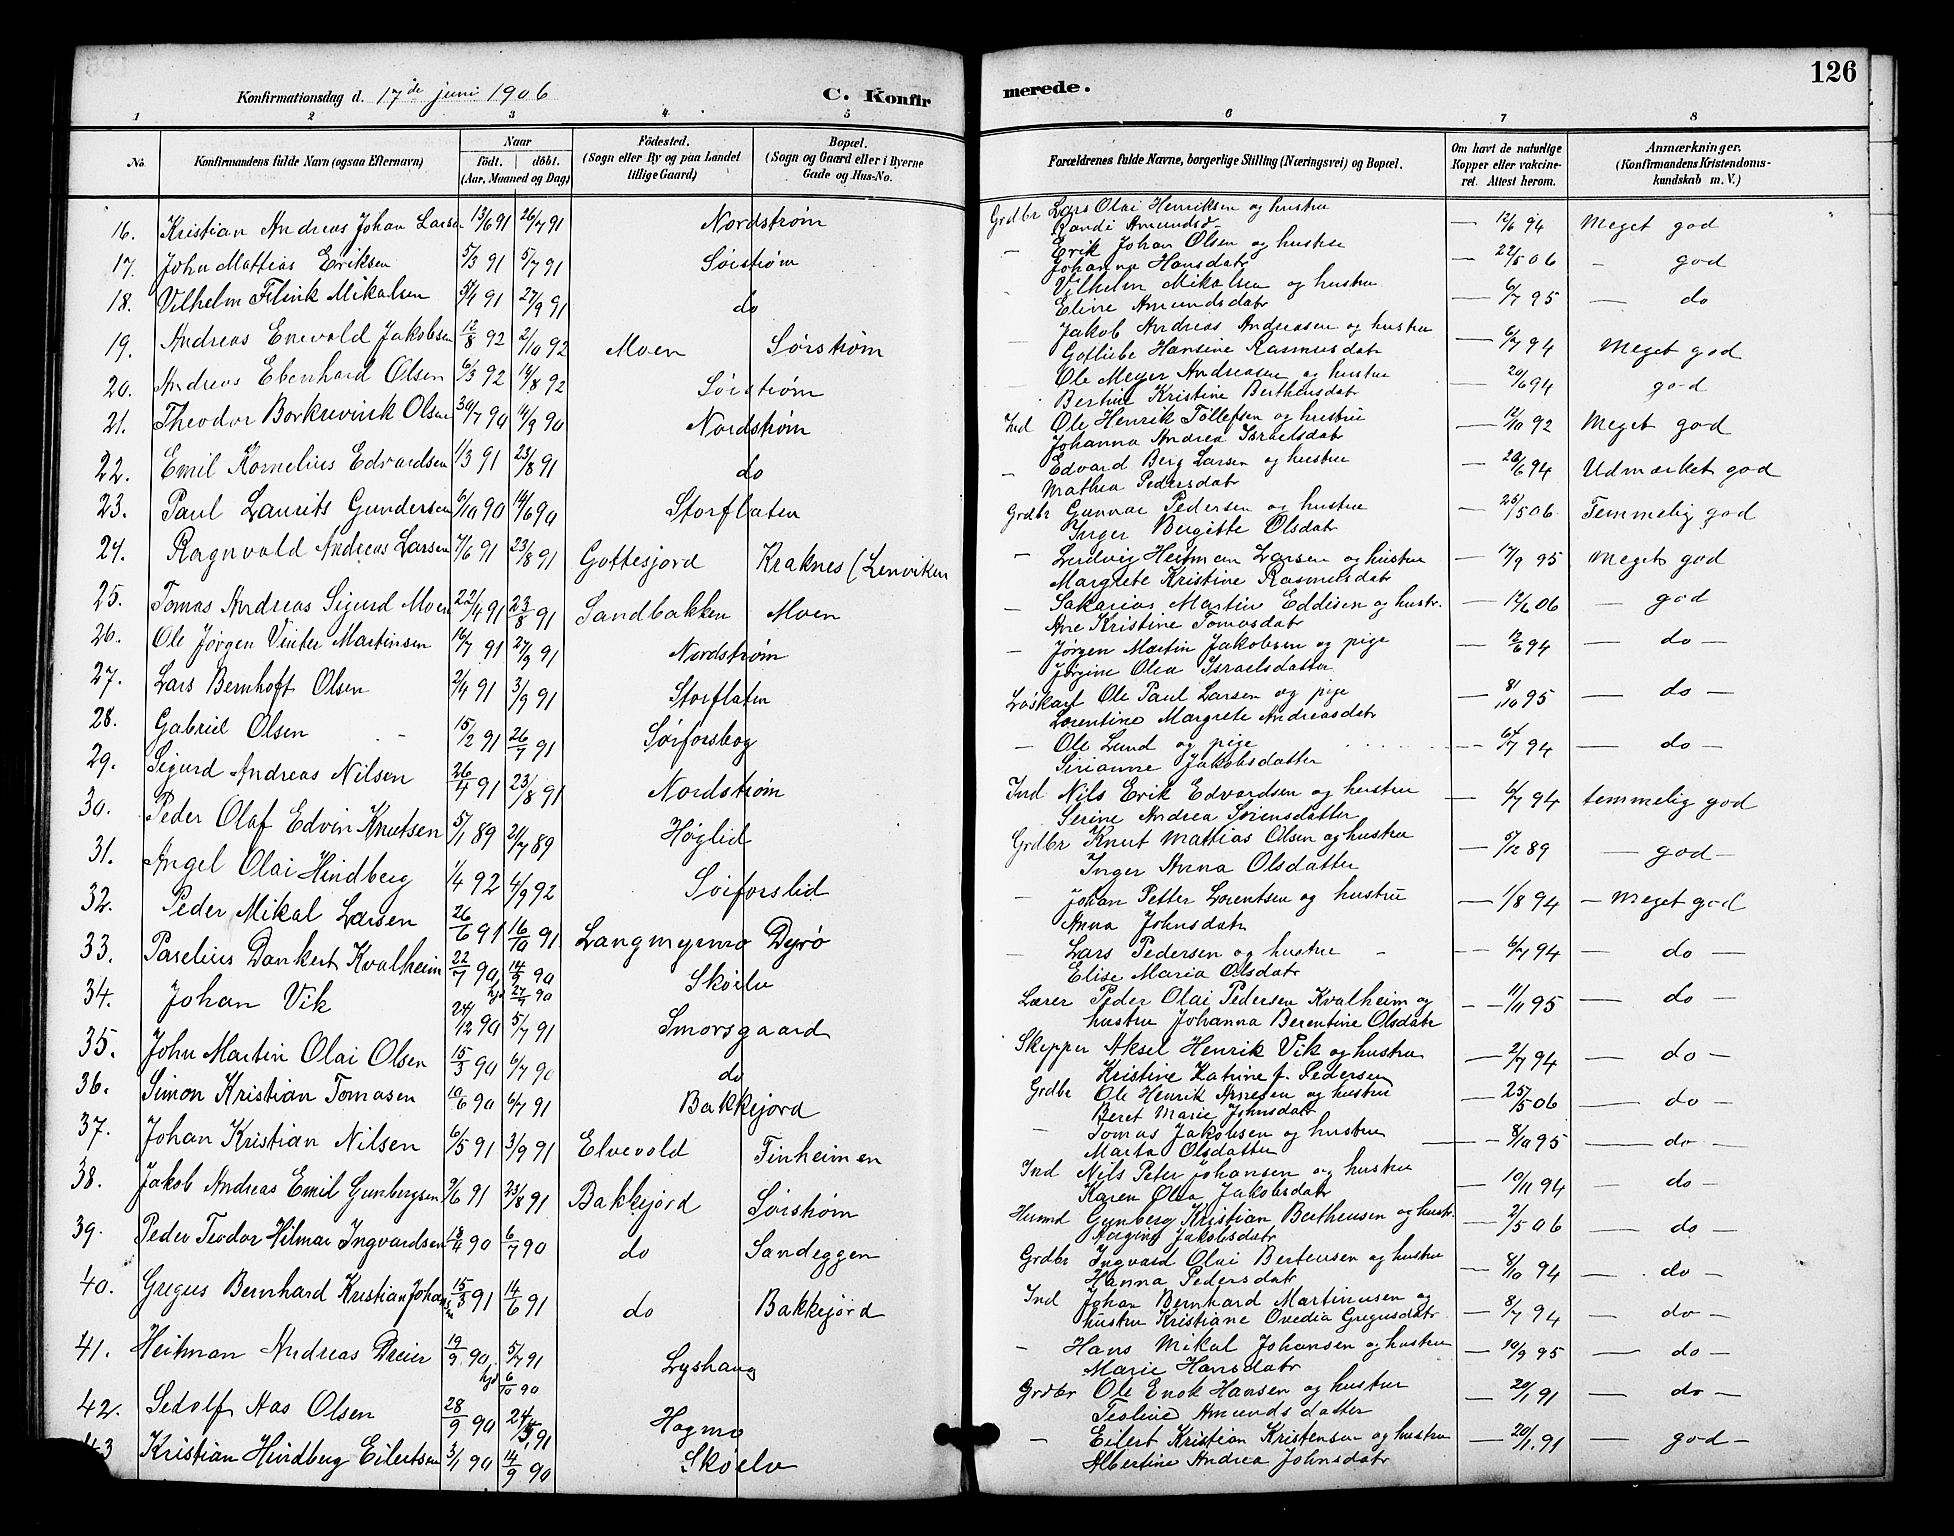 Konfirmationsdag d. 17de juni 1906 C. Konfir merede. 126
1 2 3 4 5 6 7 8
No. Konfirmandens fulde Navn (ogsaa Efternavn) Naar födt. döbt. (Aar, Maaned og Dag) Födested. (Sogn eller By og paa Landet tillige Gaard) Bopæl. (Sogn og Gaard eller i Byerne Gade og Hus-No. Forældrenes fulde Navne, borgerlige Stilling (Næringsvei) og Bopæl. Om havt de naturlige Kopper eller vakcineret. Attest herom. Anmærkninger. (Konfirmandens Kristendomskundskab m. V.)
16. Kristian Andreas Johan Larsen 13/6 91 26/7 91 Nordstrøm Grdbr Lars Olai Henriksen og hustru — 12/6 94 Meget god
Randi Amundsd-
17. John Mattias Eriksen 5/3 91 5/7 91 Sørstrøm — Erik Johan Olsen og hustru — 22/5 06 — god
Johanna Hansdatr
18. Vilhelm Flink Mikalsen 91 27/9 91 do Vilhelm Mikalsen og hustru — 6/7 95 — do
Eline Amundsdatr
19. Andreas Enevold Jakobsen 12/8 92 2/10 92 Moen Sørstrøm — Jakob Andreas Andreasen og hustru — 6/7 94 Meget god
Gotliebe Hansine Rasmusdatr
20. Andreas Ebenhard Olsen 6/3 92 14/8 92 Sørstrøm — Ole Meyer Andreasen og hustru — 20/6 94 god
Bertine Kristine Berthensdatr
21. Theodor Borkrevink Olsen 30/7 90 14/9 90 Nordstrøm Ind Ole Henrik Tollefsen og hustru — 12/10 92 Meget god
Johanna Andrea Israelsdatr
22. Emil Kornelius Edvardsen 1/3 91 23/8 91 do — Edvard Berg Larsen og hustru — 20/6 94 Udmærket god
Mathea Pedersdatr
23. Paul Laurits Gundersen 6/10 90 14/6 90 Storflaten Grdbr Gunnar Pedersen og hustru — 25/5 06 Temmelig god
Inger Bergitte Olsdatr
24. Ragnvald Andreas Larsen 7/6 91 23/8 91 Gottesjord Kraknes (Lenviken — Ludvig Heitman Larsen og hustru — 17/9 95 Meget god
Margrete Kristine Rasmusdatr
25. Tomas Andreas Sigurd Moen 22/4 91 23/8 91 Sandbakken Moen — Sakarias Martin Eddisen og hustr. — 12/6 06 — god
Ane Kristine Tomasdatr
26. Ole Jørgen Vinter Martinsen 16/7 91 27/9 91 Nordstrøm — Jørgen Martin Jakobsen og pige — 12/6 94 — do —
Jørgine Olea Israelsdatter
27. Lars Bernhoft Olsen 2/4 91 3/9 91 Storflaten Løskarl Ole Paul Larsen og pige — 95 — do —
Lorentine Margrete Andreasdatr
28. Gabriel Olsen 15/2 91 26/7 91 Sørforsbog — Ole Lund og pige — 94 — do —
Sirianne Jakobsdatter
29. Sigurd Andreas Nilsen 26/4 91 23/8 91 Nordstrøm Ind Nils Erik Edvardsen og hustru — 6/7 94 temmelig god
Serine Andrea Sørensdatter
30. Peder Olaf Edvin Knutsen 5/1 89 21/7 89 Høglid Grdbr Knut Mattias Olsen og hustru — 5/12 89 — god —
Inger Anna Olsdatter
31. Angel Olai Hindberg 1/4 92 4/9 92 Sørforslid — Johan Petter Lorentsen og hustru — 1/8 94 — Meget god
Anna Johnsdatr
32. Peder Mikal Larsen 26/6 91 16/10 91 Langmyrmo Dyrø — Lars Pedersen og hustru — 6/7 94 — do —
Elise Maria Olsdatr
33. Paselius Dankert Kvalheim 22/7 90 14/9 90 Skøelv Lærer Peder Olai Pedersen Kvalheim og — 11/11 95 — do —
hjd 27/7 90 hustru Johanna Berentine Olsdatr
34. Johan Vik 24/12 90 5/7 91 Smorsgaard Skipper Aksel Henrik Vik og hustru — 2/7 94 — do —
Kristine Katrine f. Pedersen
35. John Martin Olai Olsen 15/3 90 6/7 90 do Grdbr Ole Henrik Arnesen og hustru — 25/5 06 — do —
Beret Marie Johnsdatr
36. Simon Kristian Tomasen 10/6 90 6/7 91 Bakkejord — Tomas Jakobsen og hustru — 8/10 95 — do —
Marta Olsdatter
37. Johan Kristian Nilsen 6/5 91 3/9 91 Elvevold Finheimen Ind Nils Peter Johansen og hustru — 10/11 94 — do —
Karen Olea Jakobsdatr
38. Jakob Andreas Emil Gunbergsen 9/6 91 23/8 91 Bakkejord Sørstrøm Husmd Gunberg Kristian Berthensen og hustr. — 2/5 06 — do —
Jakobsdatr
39. Peder Teodor Hilmar Ingvardsen 18/4 90 6/7 90 do Sandeggen Grdbr Ingvard Olai Bertensen og hustru — 8/10 94 — do —
Hanna Pedersdatr
40. Gregus Bernhard Kristian Johansen 15/3 91 14/6 91 do Bakkejord Ind Johan Bernhard Martinusen og — 8/7 94 — do —
hustru Kristiane Ovedia Gregusdatr
41. Heitman Andreas Dreier 19/9 90 5/7 91 Lyshaug — Hans Mikal Johansen og hustru — 10/9 95 — do —
hjd 6/10 90 Marie Hansdatr
42. Sedolf Aas Olsen 28/9 90 91 Hagmo Grdbr Ole Enok Hansen og hustru — 20/1 91 — do —
Teoline Amundsdatter
43 Kristian Hindberg Eilertsen 3/1 90 14/9 90 Skøelv — Eilert Kristian Kristensen og hustru — 20/1 91 — god —
Albertine Andrea Johnsdatr